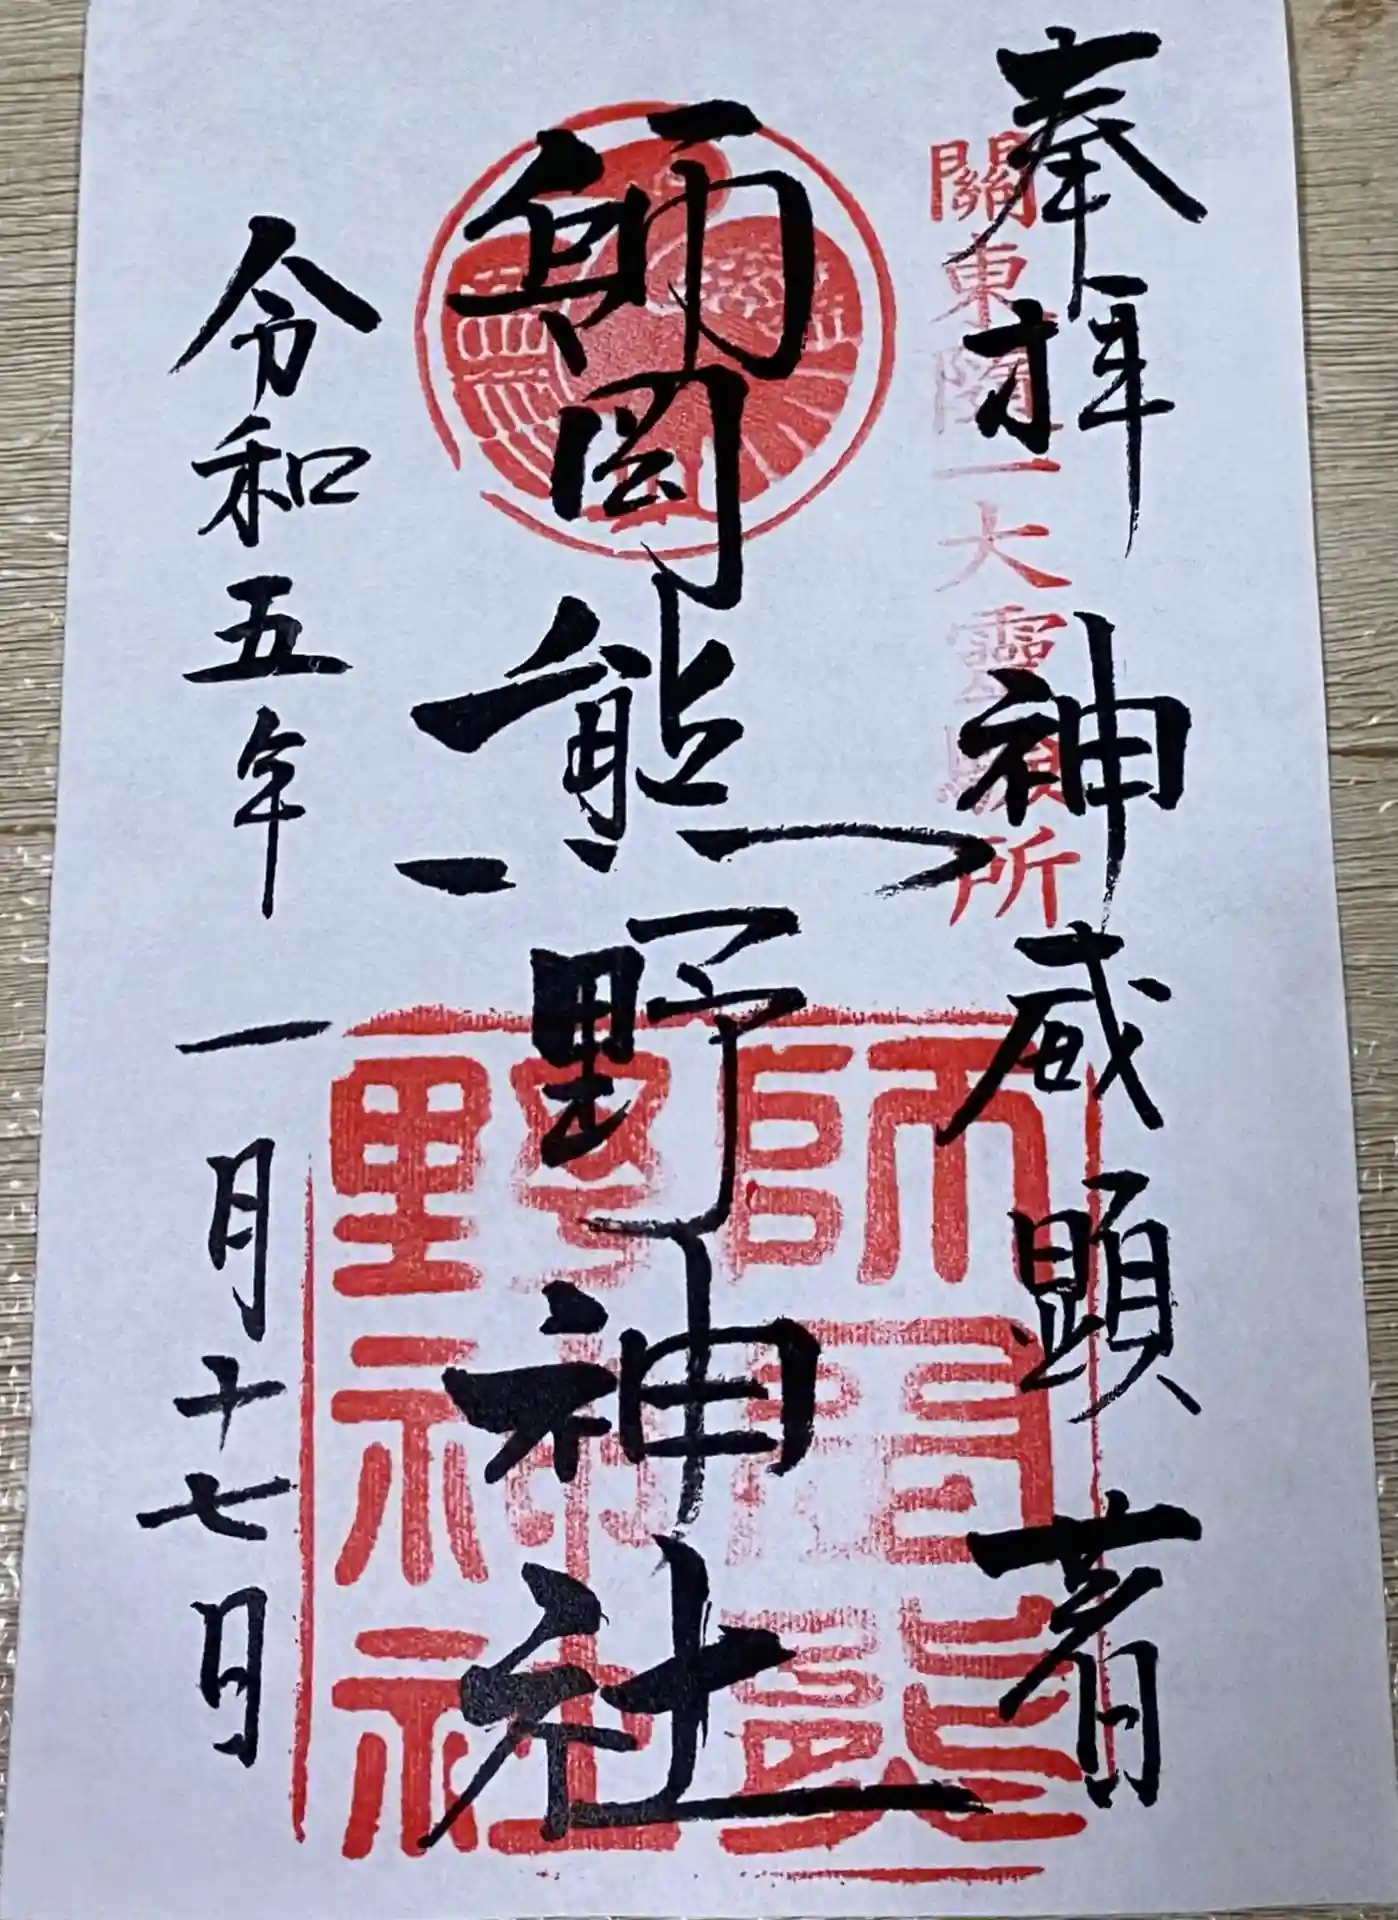 奉拝 神威顕著
關東随一大霊験所
師岡熊野神社
師岡熊野神社
令和五年一月十七日